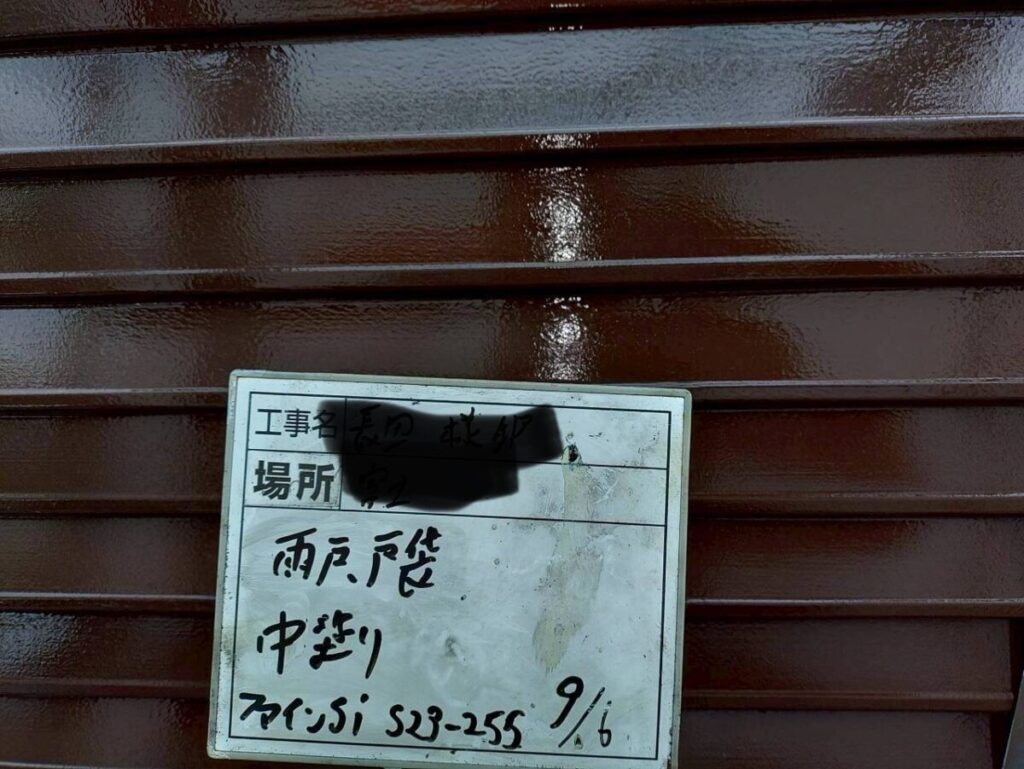 工事名
場所
雨戸、戸袋
中塗り
ファインSi S23-255 9/6